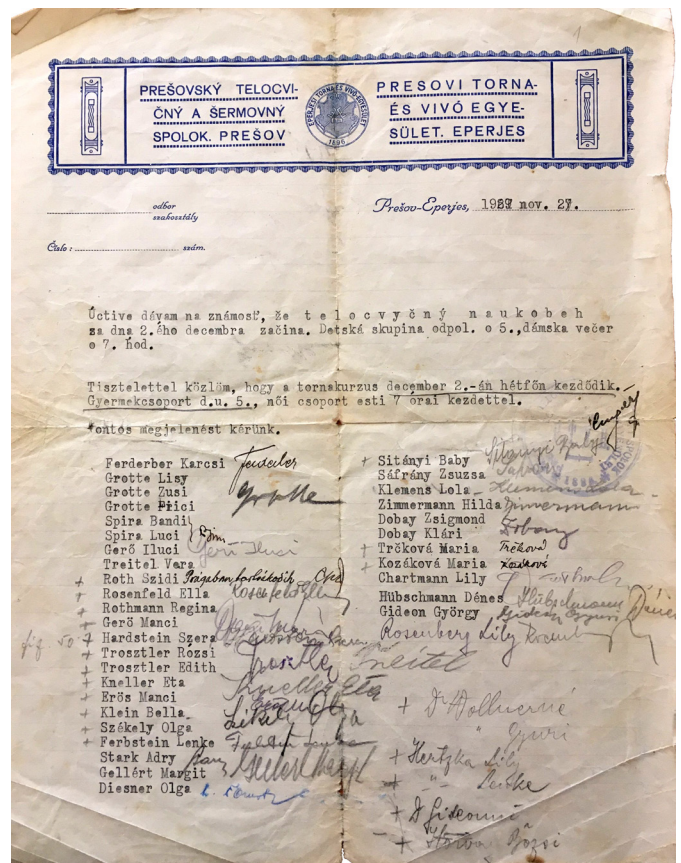 1
PREŠOVSKÝ TELOCVI-
ČNÝ A ŠERMOVNÝ
SPOLOK. PREŠOV
EPERJESI TORNA ÉS VIVÓ EGYESÜLET
1896
PRESOVI TORNA-
ÉS VIVÓ EGYE-
SÜLET. EPERJES
odbor
szakosztály
Prešov-Eperjes, nov. 27.
Číslo: szám.
Úctive dávam na známosť, že telocvyčný naukobeh
za dna 2.ého decembra začína. Detská skupina odpol. o 5.,dámska večer
o 7. hod.
Tisztelettel közlöm, hogy a tornakurzus december 2.-án hétfőn kezdődik.
Gyermekcsoport d.u. 5., női csoport esti 7 órai kezdettel.
Pontos megjelenést kérünk.
Ferderber Karcsi Ferderber
Grotte Lisy
Grotte Zusi Grotte
Grotte Pici
Spira Bandi
Spira Luci
Gerő Iluci Gerő Iluci
Treitel Vera
+ Roth Szidi Prágában tartózkodik
+ Rosenfeld Ella Rosenfeld Ella
+ Rothmann Regina
+ Gerő Manci
+ Hardstein Szera
+ Trosztler Rózsi
+ Trosztler Edith Trosztler Treitel
+ Kneller Eta Kneller Eta
+ Erös Manci
+ Klein Bella
+ Székely Olga Székely Olga
+ Ferbstein Lenke
Stark Adry
Gellért Margit Gellért Margit
Diesner Olga
+ Sitányi Baby Sitányi Baby
Sáfrány Zsuzsa
Klemens Lola Klemens Lola
Zimmermann Hilda Zimmermann
Dobay Zsigmond
Dobay Klári Dobay
+ Trčková Maria Trčková
+ Kozáková Maria Kozáková
Chartmann Lily
Hübschmann Dénes Hübschmann Dénes
Gideon György Gideon György
Rosenberg Lily
+ Dr Hollnerné
" Gyuri
+ Hertzka Lily
+ " Lenke
+ Dr Gideonné
+ Rózsi